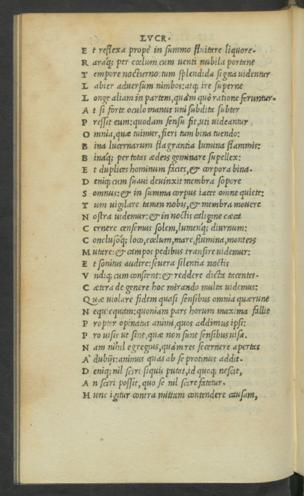 LVCR.
E t reflexa propè in summo fluitere liquore.
R araq; per cœlum cum uenti nubila portant
T empore nocturno: tum splendida signa uidentur
L abier aduersum nimbos: atq; ire superne
L onge aliam in partem, quàm quò ratione feruntur.
A t si forte oculo manus uni subdita subter
P ressit eum: quodam sensu fit, uti uideantur
O mnia, quæ tuimur, fieri tum bina tuendo:
B ina lucernarum flagrantia lumina flammis:
B inaq; per totas ædeis geminare supellex:
E t duplices hominum facies, & corpora bina.
D eniq; cum suaui deuinxit membra sopore
S omnus: & in summa corpus iacet omne quiete:
T um uigilare tamen nobis, & membra mouere
N ostra uidemur: & in noctis caligine cæca
C ernere censemus solem, lumenq; diurnum:
C onclusoq; loco, cœlum, mare, flumina, monteis
M utere: & campos pedibus transire uidemur:
E t sonitus audire: seuera silentia noctis
V ndiq; cum constent: & reddere dicta tacenteis.
C ætera de genere hoc mirando multa uidemus:
Q uæ uiolare fidem quasi sensibus omnia quærunt
N equicquam: quoniam pars horum maxima fallit
P ropter opinatus animi, quos addimus ipsi:
P ro uisis ut sint, quæ non sunt sensibus uisa.
N am nihil egregius, quàm res secernere apertas
A' dubijs: animus quas ab se protinus addit.
D eniq; nil sciri siquis putat, id quoq; nescit,
A n sciri possit, quo se nil scire fatetur.
H unc igitur contra mittam contendere causam,